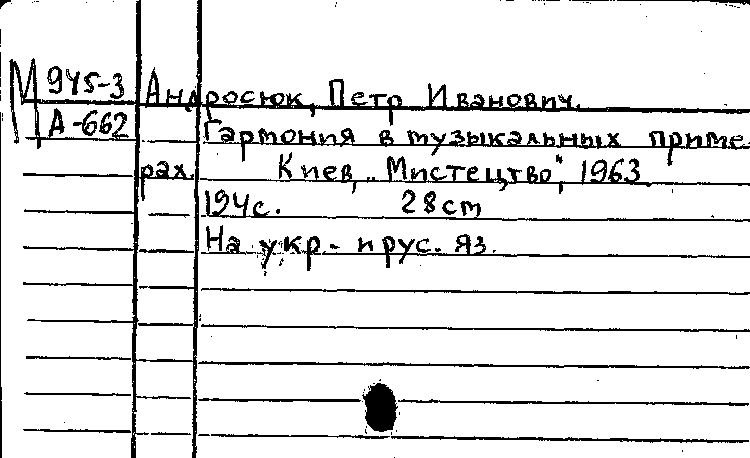 М 945-3
А-662
Андросюк, Петр Иванович.
Гармония в музыкальных приме-
рах. Киев, „Мистецтво", 1963.
194с. 28cm
На укр. и рус. яз.